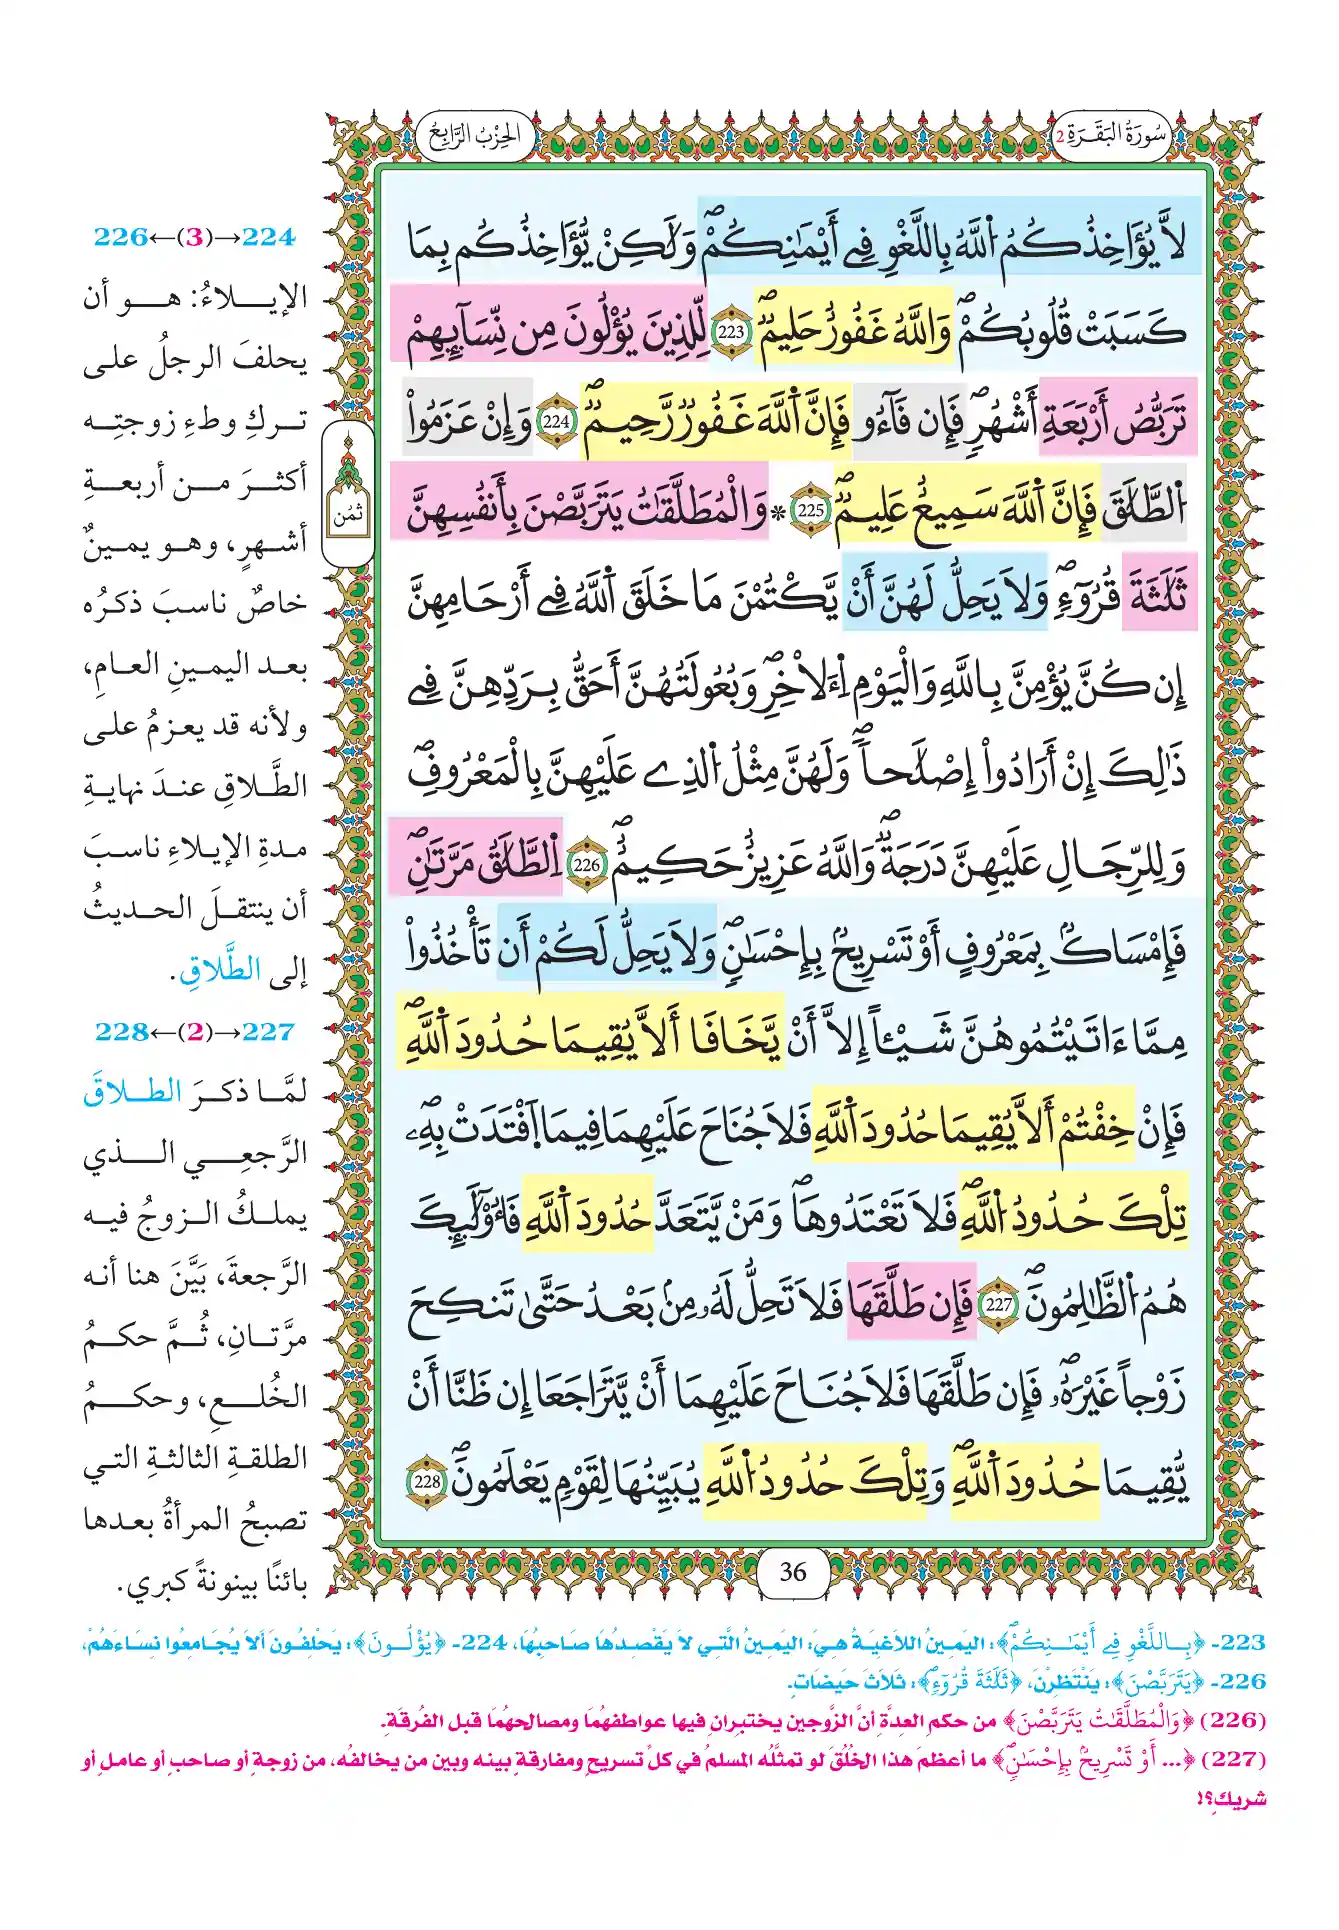 سُورَةُ البَقَرَةِ 2
الحِزْبُ الرَّابِعُ
لاَّ يُؤَاخِذُكُمُ اُ۬للَّهُ بِاللَّغْوِ فِےٓ أَيْمَٰنِكُمْۖ وَلَٰكِنْ يُّؤَاخِذُكُم بِمَا
كَسَبَتْ قُلُوبُكُمْۖ وَاللَّهُ غَفُورٌ حَلِيمٌۖ 223 لِّلذِينَ يُؤْلُونَ مِن نِّسَآئِهِمْ
تَرَبُّصُ أَرْبَعَةِ أَشْهُرٍۖ فَإِن فَآءُو فَإِنَّ اَ۬للَّهَ غَفُورٌ رَّحِيمٌۖ 224 وَإِنْ عَزَمُواْ
اُ۬لطَّلَٰقَ فَإِنَّ اَ۬للَّهَ سَمِيعٌ عَلِيمٌۖ 225 * وَالْمُطَلَّقَٰتُ يَتَرَبَّصْنَ بِأَنفُسِهِنَّ
ثَلَٰثَةَ قُرُوٓءٖۖ وَلاَ يَحِلُّ لَهُنَّ أَنْ يَّكْتُمْنَ مَا خَلَقَ اَ۬للَّهُ فِےٓ أَرْحَامِهِنَّ
إِن كُنَّ يُؤْمِنَّ بِاللَّهِ وَالْيَوْمِ اِ۬لَاخِرِۖ وَبُعُولَتُهُنَّ أَحَقُّ بِرَدِّهِنَّ فِے
ذَٰلِكَ إِنْ أَرَادُوٓاْ إِصْلَٰحاٗۖ وَلَهُنَّ مِثْلُ اُ۬لذِے عَلَيْهِنَّ بِالْمَعْرُوفِۖ
وَلِلرِّجَالِ عَلَيْهِنَّ دَرَجَةٞۖ وَاللَّهُ عَزِيزٌ حَكِيمٌۖ 226 اِ۬لطَّلَٰقُ مَرَّتَٰنِۖ
فَإِمْسَاكُۢ بِمَعْرُوفٍ أَوْ تَسْرِيحُۢ بِإِحْسَٰنٖۖ وَلاَ يَحِلُّ لَكُمْ أَن تَأْخُذُواْ
مِمَّآ ءَاتَيْتُمُوهُنَّ شَيْـٔاً إِلآَّ أَنْ يَّخَافَآ أَلاَّ يُقِيمَا حُدُودَ اَ۬للَّهِۖ
فَإِنْ خِفْتُمْ أَلاَّ يُقِيمَا حُدُودَ اَ۬للَّهِ فَلاَ جُنَاحَ عَلَيْهِمَا فِيمَا اَ۪فْتَدَتْ بِهِۦۖ
تِلْكَ حُدُودُ اُ۬للَّهِۖ فَلاَ تَعْتَدُوهَاۖ وَمَنْ يَّتَعَدَّ حُدُودَ اَ۬للَّهِ فَأُوْلَٰٓئِكَ
هُمُ اُ۬لظَّٰلِمُونَۖ 227 فَإِن طَلَّقَهَا فَلاَ تَحِلُّ لَهُۥ مِنۢ بَعْدُ حَتَّىٰ تَنكِحَ
زَوْجاً غَيْرَهُۥۖ فَإِن طَلَّقَهَا فَلاَ جُنَاحَ عَلَيْهِمَآ أَنْ يَّتَرَاجَعَآ إِن ظَنَّآ أَنْ
يُّقِيمَا حُدُودَ اَ۬للَّهِۖ وَتِلْكَ حُدُودُ اُ۬للَّهِ يُبَيِّنُهَا لِقَوْمٖ يَعْلَمُونَۖ 228
ثُمُن
36
224→(3)←226
الإيلاءُ: هو أن
يحلفَ الرجلُ على
تركِ وطءِ زوجتِه
أكثرَ من أربعةِ
أشهرٍ، وهو يمينٌ
خاصٌ ناسبَ ذكرُه
بعد اليمينِ العامِ،
ولأنه قد يعزمُ على
الطَّلاقِ عندَ نهايةِ
مدةِ الإيلاءِ ناسبَ
أن ينتقلَ الحديثُ
إلى الطَّلاقِ.
227→(2)←228
لمَّا ذكرَ الطلاقَ
الرَّجعِي الذي
يملكُ الزوجُ فيه
الرَّجعةَ، بَيَّنَ هنا أنه
مرَّتانِ، ثُمَّ حكمُ
الخُلعِ، وحكمُ
الطلقةِ الثالثةِ التي
تصبحُ المرأةُ بعدها
بائنًا بينونةً كبري.
223- ﴿بِاللَّغْوِ فِےٓ أَيْمَٰنِكُمْۖ﴾: اليَمِينُ اللاَّغِيَةُ هِيَ: اليَمِينُ الَّتِي لاَ يَقْصِدُهَا صَاحِبُهَا، 224- ﴿يُؤْلُونَ﴾: يَحْلِفُونَ أَلاَّ يُجَامِعُوا نِسَاءَهُمْ،
226- ﴿يَتَرَبَّصْنَ﴾: يَنْتَظِرْنَ، ﴿ثَلَٰثَةَ قُرُوٓءٖۖ﴾: ثَلَاثَ حَيْضَاتٍ.
(226) ﴿وَالْمُطَلَّقَٰتُ يَتَرَبَّصْنَ﴾ من حكم العدَّةِ أنَّ الزَّوجين يختبرانِ فيها عواطفهُما ومصالحهُما قبل الفُرقةِ.
(227) ﴿... أَوْ تَسْرِيحُۢ بِإِحْسَٰنٖۖ﴾ ما أعظمَ هذا الخُلُقَ لو تمثَّلَه المسلمُ في كلِّ تسريحٍ ومفارقةٍ بينه وبين من يخالفُه، من زوجةٍ أو صاحبٍ أو عاملٍ أو
شريكٍ؟!